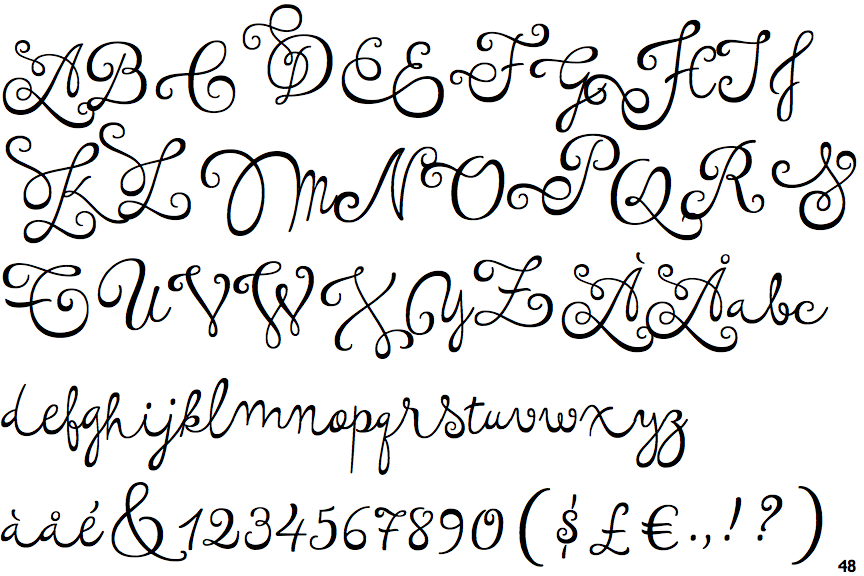 ABCDEFGHIJ
KLMNOPQRS
TUVWXYZÀÅabc
defghijklmnopqrstuvwxyz
àåé&1234567890($£€.,!?)
48